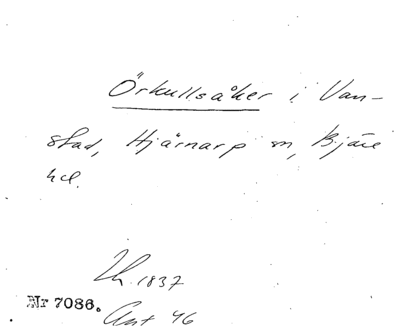 Örkullsåker i Van-
stad, Hjärnarp sn, Bjäre
hd.
Lh. 1837
Nr 7086.
Ant 46